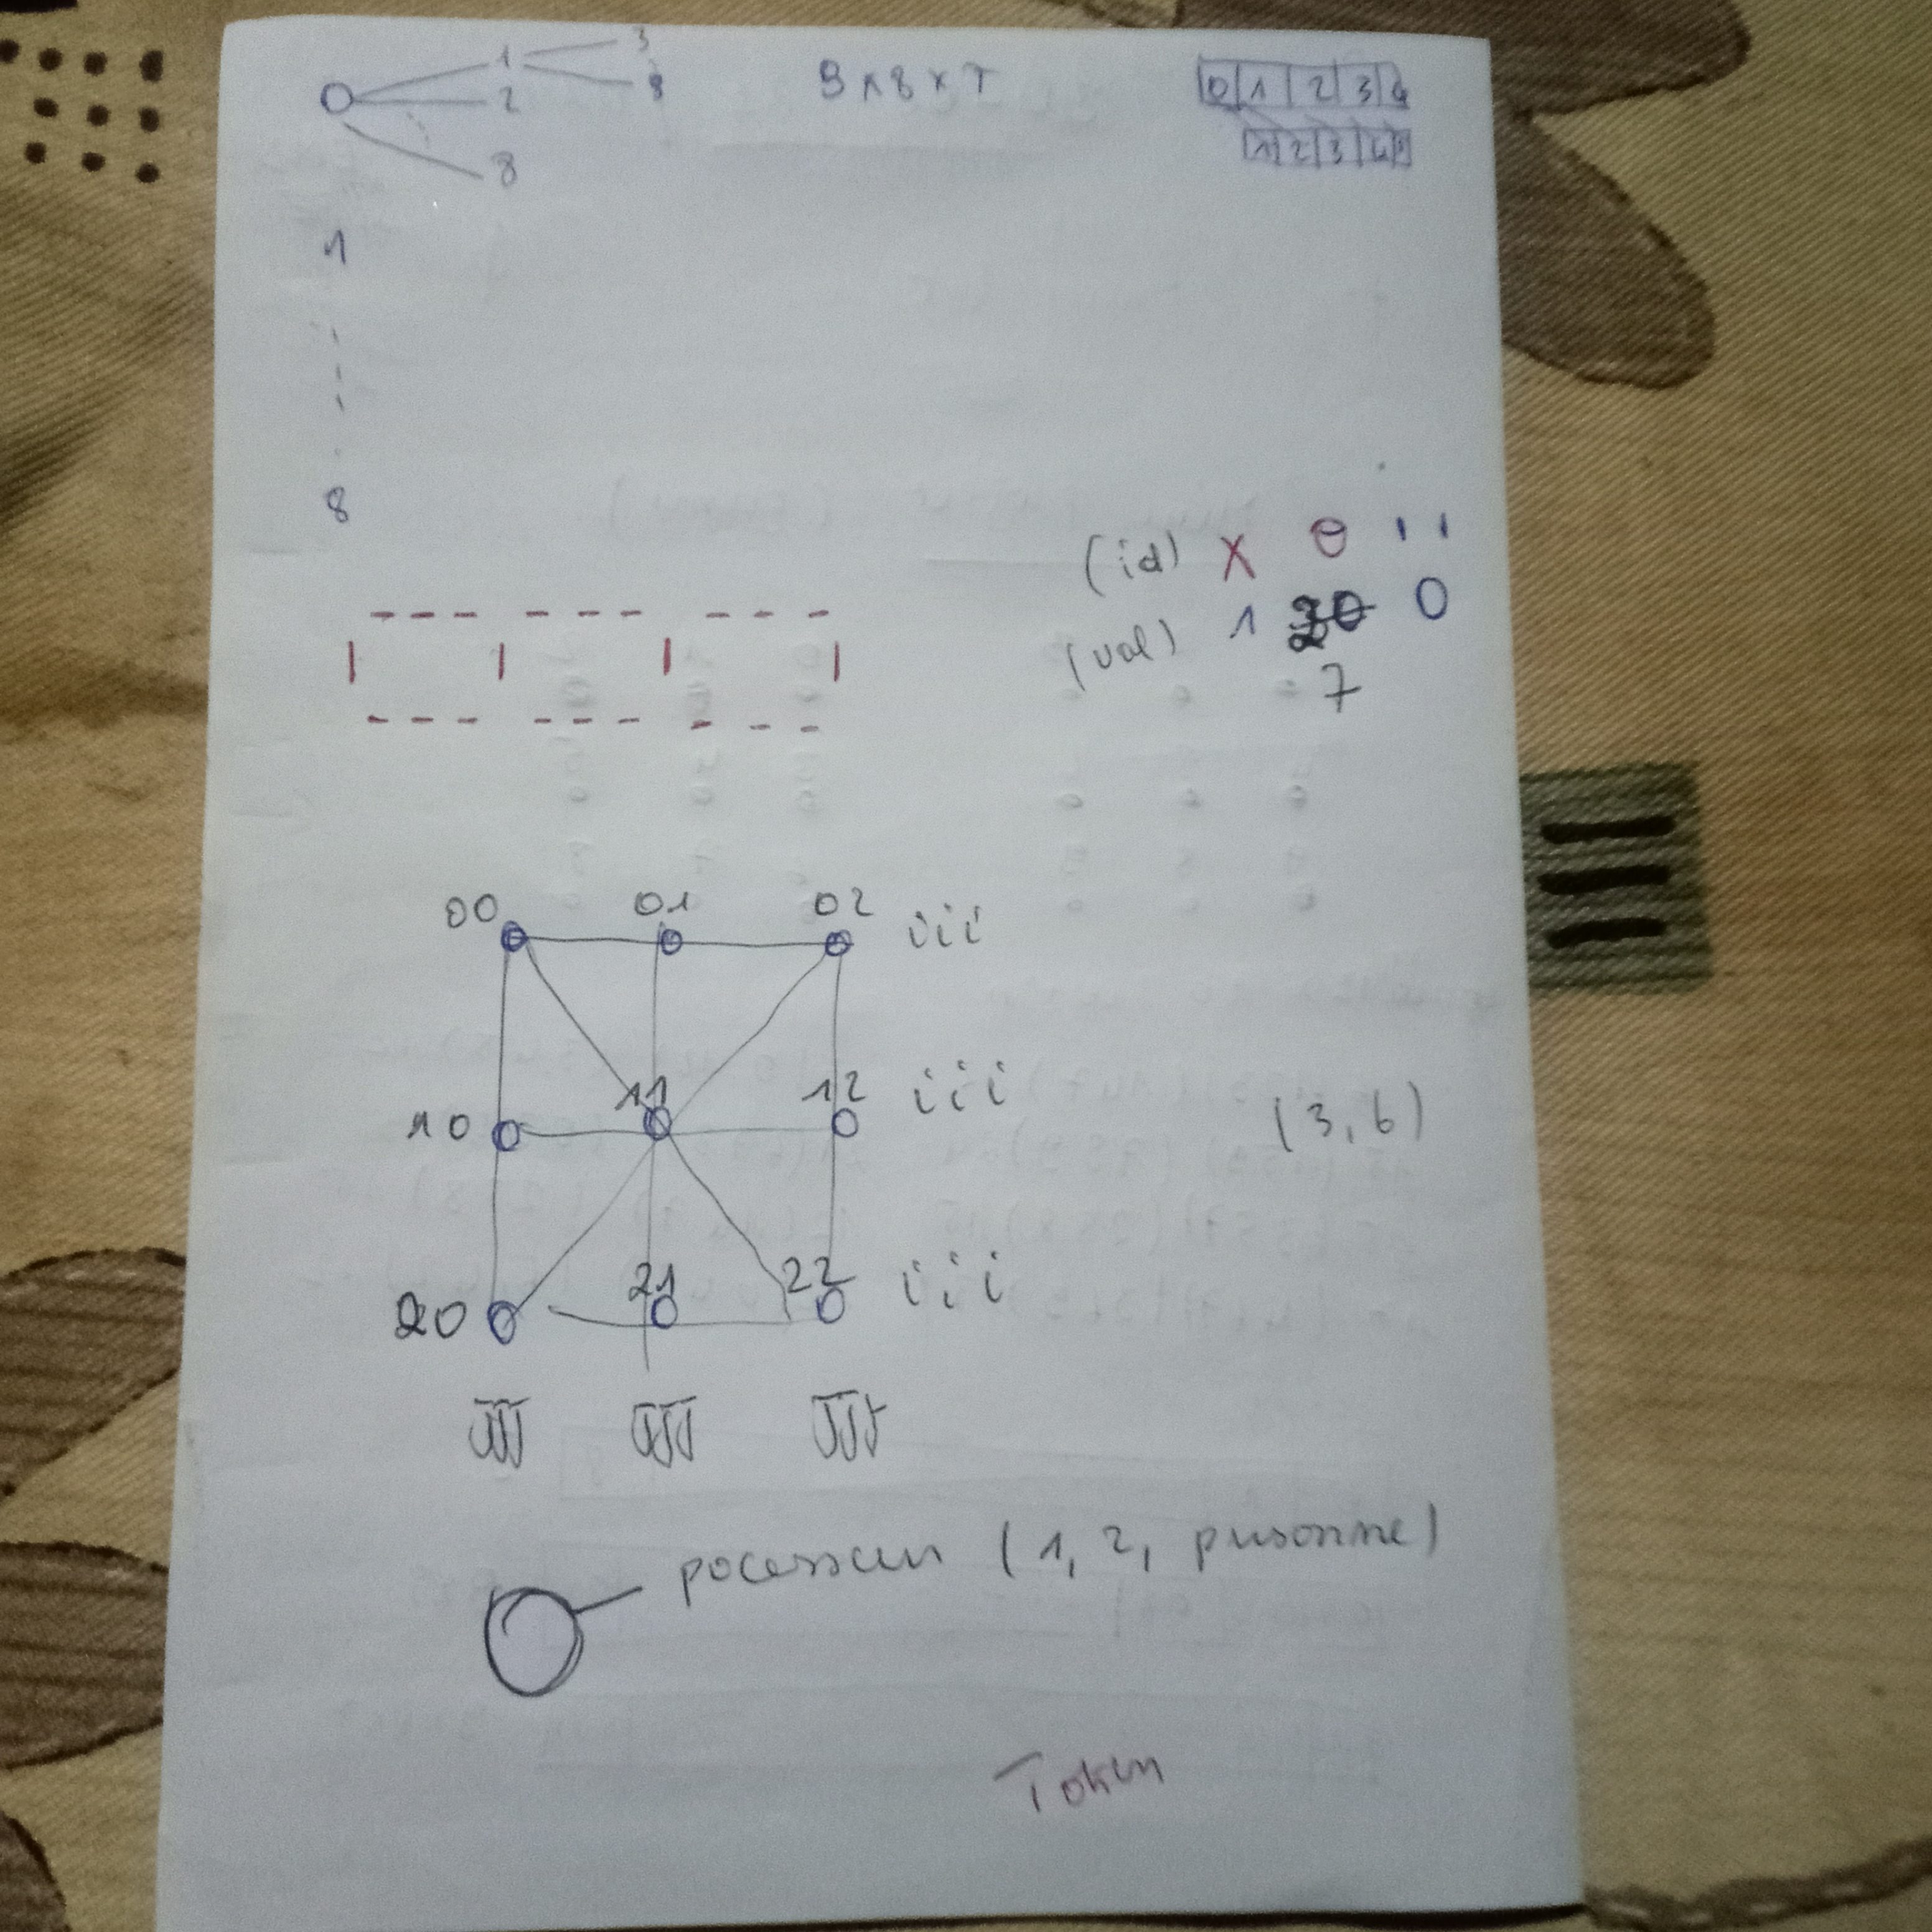 1 3
2 8
8
9 x 8 x 7
0 1 2 3 4
1 2 3 4
1
8
(id) X O ' '
(val) 1 0
7
00 01 02 iii
10 11 12 iii
(3, 6)
20 21 22 iii
JJJ JJJ JJJ
pocesseur (1, 2, personne)
Token